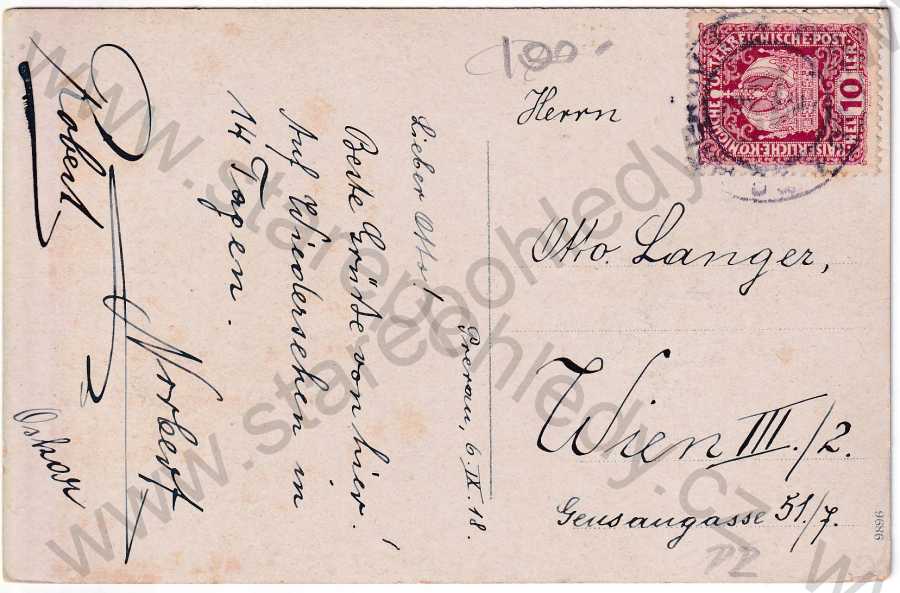 Prerau, 6. IX. 18.
Lieber Otto!
Beste Grüße von hier.
Auf Wiedersehen in
14 Tagen!
Norbert
Robert
Oskar
100.-
Herrn
Otto Langer,
Wien III./2.
Geusaugasse 51/7.
KAISERLICHE KÖNIGLICHE ÖSTERREICHISCHE POST
10 HELLER
9896
www.starepohledy.cz